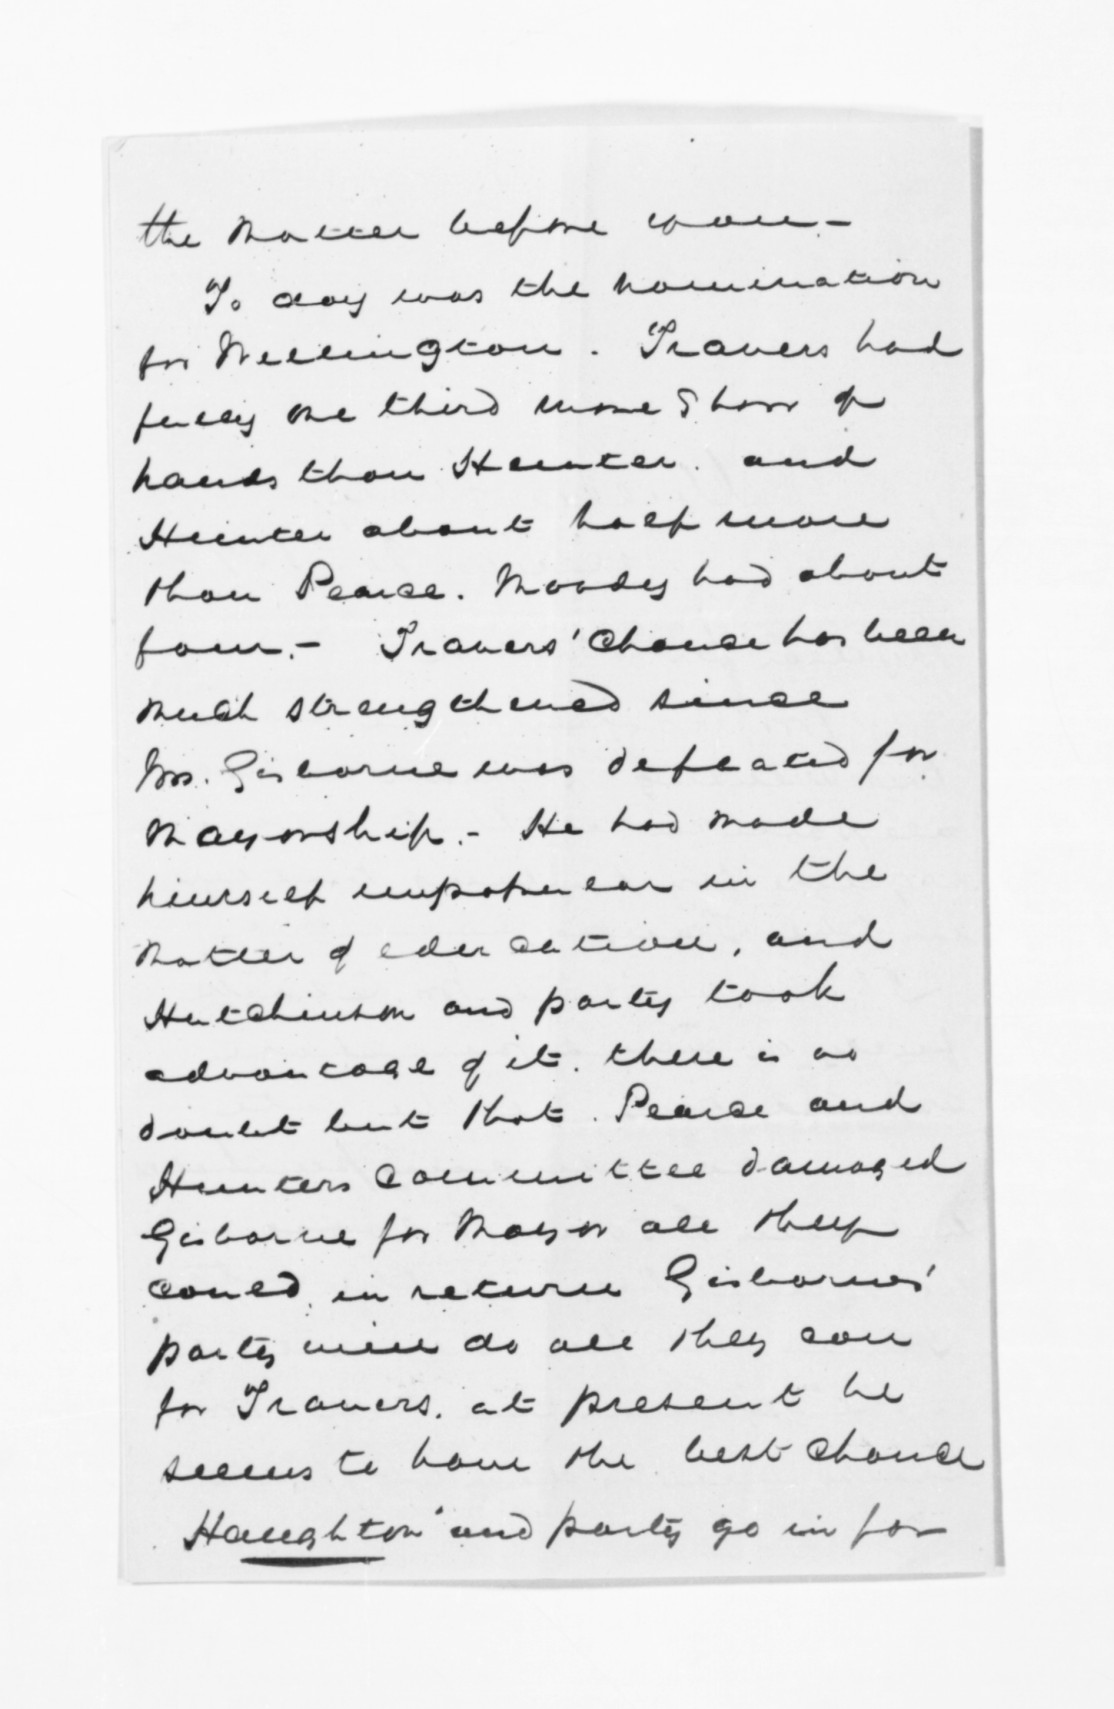 the matter before you –
To day was the nomination
for Wellington. Travers had
fully one third more Show of
hands than Hunter. and
Hunter about half more
than Pearce. Moody had about
four. – Travers' chance has been
much strengthened since
Mr. Gisborne was defeated for
Mayorship. – He had made
himself unpopular in the
matter of education, and
Hutchinson and party took
advantage of it. there is no
doubt but that. Pearce and
Hunters Committee damaged
Gisborne for Mayor all they
could, in return Gisbornes'
party will do all they can
for Travers. at present he
seems to have the best chance
Haughton and party go in for